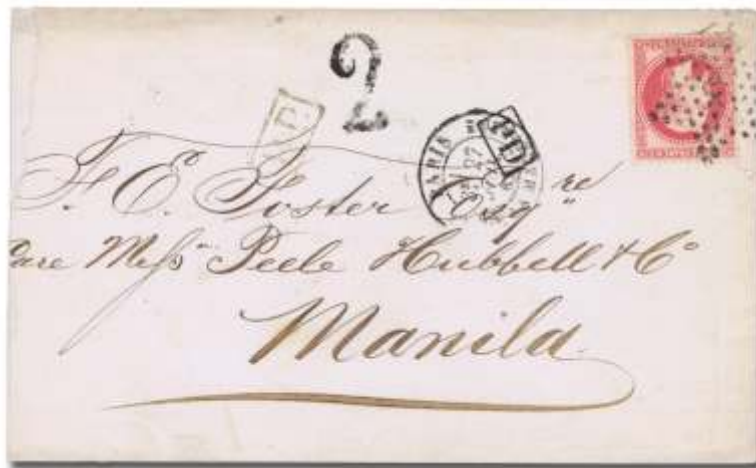 2
P.D.
PARIS
27
PD
F. E. Foster Esq^re
Care Mess^rs Peele Hubbell & C^o
Manila